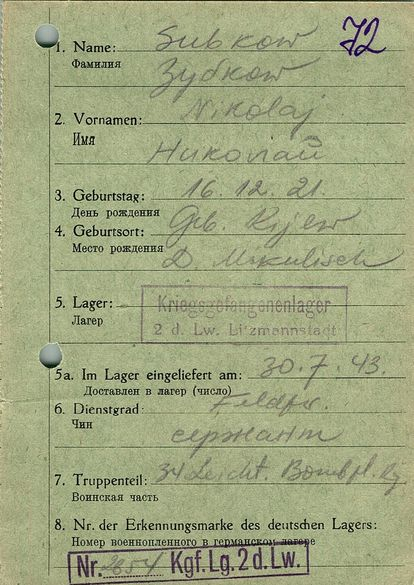 72
1. Name: Subkow
Фамилия Зубков
2. Vornamen: Nikolaj
Имя Николай
3. Geburtstag: 16.12.21.
День рождения
4. Geburtsort: Geb. Kijew
Место рождения D. Mikulisch
5. Lager: Kriegsgefangenenlager
Лагер 2 d. Lw. Litzmannstadt
5a. Im Lager eingeliefert am: 30.7.43.
Доставлен в лагер (число)
6. Dienstgrad: Feldw.
Чин сержант
7. Truppenteil: 34 Leicht. Bombfl. Rg.
Воинская часть
8. Nr. der Erkennungsmarke des deutschen Lagers:
Номер военнопленного в германском лагере
Nr. 2854 Kgf. Lg. 2 d. Lw.